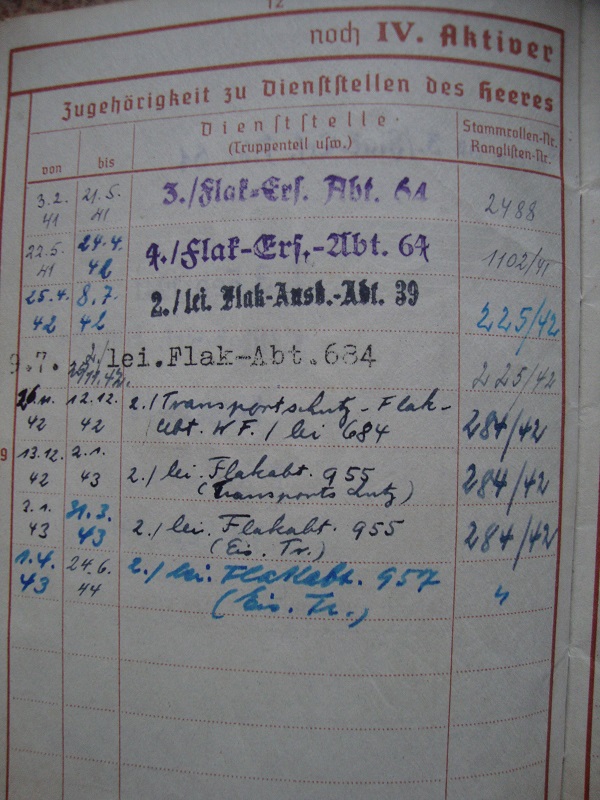 12
noch IV. Aktiver
Zugehörigkeit zu Dienststellen des Heeres
von bis Dienststelle (Truppenteil usw.) Stammrollen-Nr. Ranglisten-Nr.
3.2. 41 21.5. 41 3./Flak-Ers. Abt. 64 2488
22.5. 41 24.4. 42 4./Flak-Ers.-Abt. 64 1102/41
25.4. 42 8.7. 42 2./lei. Flak-Ausb.-Abt. 39 225/42
9.7. 25/11.42. 2./lei.Flak-Abt.684 225/42
26.11. 42 12.12. 42 2./Transportschutz-Flak-
Abt. W.F./lei 684 284/42
9 13.12. 42 2.1. 43 2./lei. Flakabt. 955
(Transportschutz) 284/42
2.1. 43 31.3. 43 2./lei. Flakabt. 955
(Eis. Tr.) 284/42
1.4. 43 24.6. 44 2./lei. Flakabt. 957 "
(Eis. Tr.)